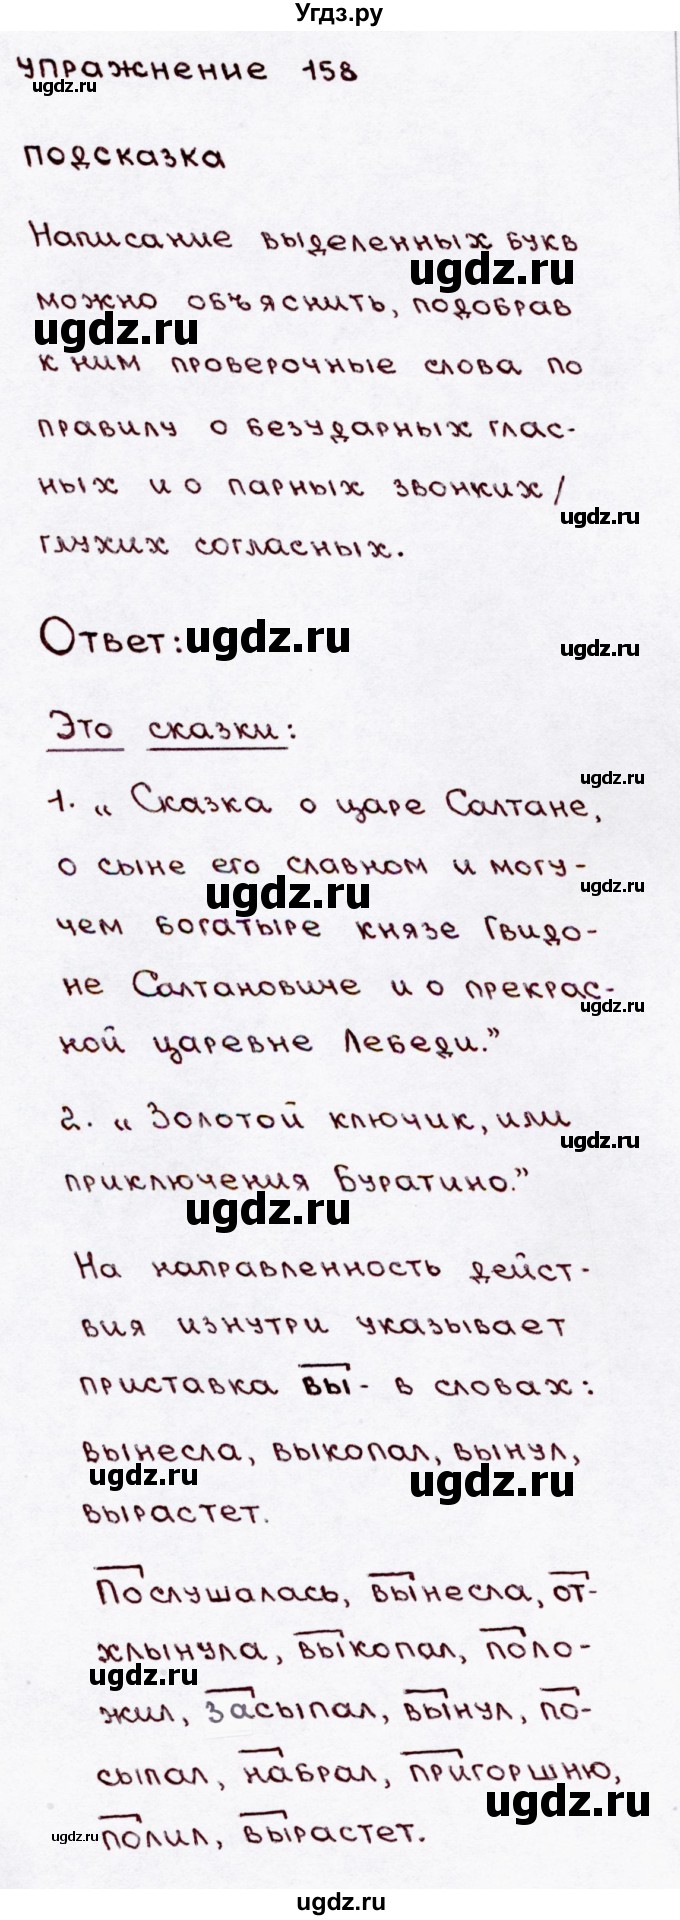 Угдз.ру
упражнение 158
ugdz.ru
подсказка
Написание выделенных букв
ugdz.ru
можно объяснить, подобрав
ugdz.ru
к ним проверочные слова по
правилу о безударных глас-
ных и о парных звонких/
ugdz.ru
глухих согласных.
Ответ:
ugdz.ru
ugdz.ru
Это сказки:
ugdz.ru
1. „ Сказка о царе Салтане,
о сыне его славном и могу-
ugdz.ru
ugdz.ru
чем богатыре князе Гвидо-
не Салтановиче и о прекрас-
ugdz.ru
ной царевне Лебеди."
2. „ Золотой ключик, или
ugdz.ru
приключения Буратино."
ugdz.ru
На направленность дейст-
вия изнутри указывает
приставка вы- в словах:
вынесла, выкопал, вынул,
ugdz.ru
ugdz.ru
вырастет.
Послушалась, вынесла, от-
хлынула, выкопал, поло-
ugdz.ru
жил, засыпал, вынул, по-
сыпал, набрал, пригоршню,
ugdz.ru
полил, вырастет.
ugdz.ru
ugdz.ru